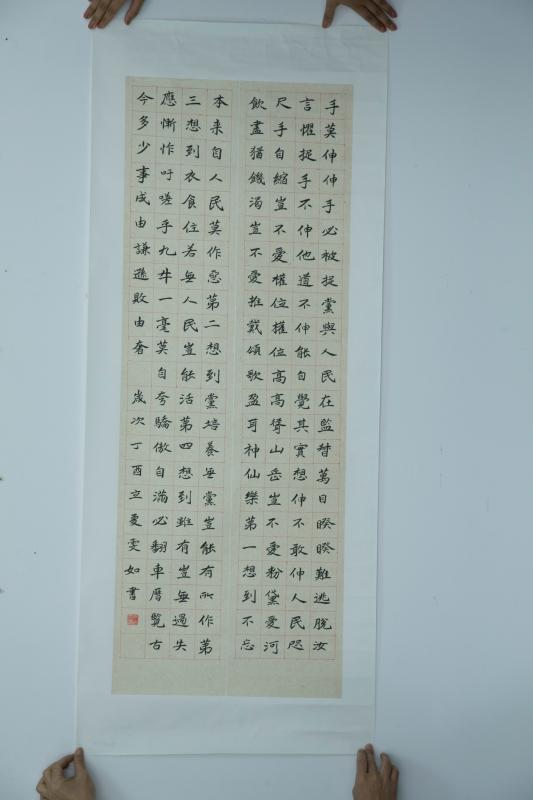 手莫伸伸手必被捉黨與人民在監督萬目睽睽難逃脫汝
言懼捉手不伸他道不伸能自覺其實想伸不敢伸人民咫
尺手自縮豈不愛權位權位高高聳山岳豈不愛粉黛愛河
飲盡猶饑渴豈不愛推戴頌歌盈耳神仙樂第一想到不忘
本來自人民莫作惡第二想到黨培養無黨豈能有所作第
三想到衣食住若無人民豈能活第四想到雖有豈無過失
應慚怍吁嗟乎九牛一毫莫自夸驕傲自滿必翻車曆覽古
今多少事成由謙遜敗由奢 歲次丁酉立夏雯如書